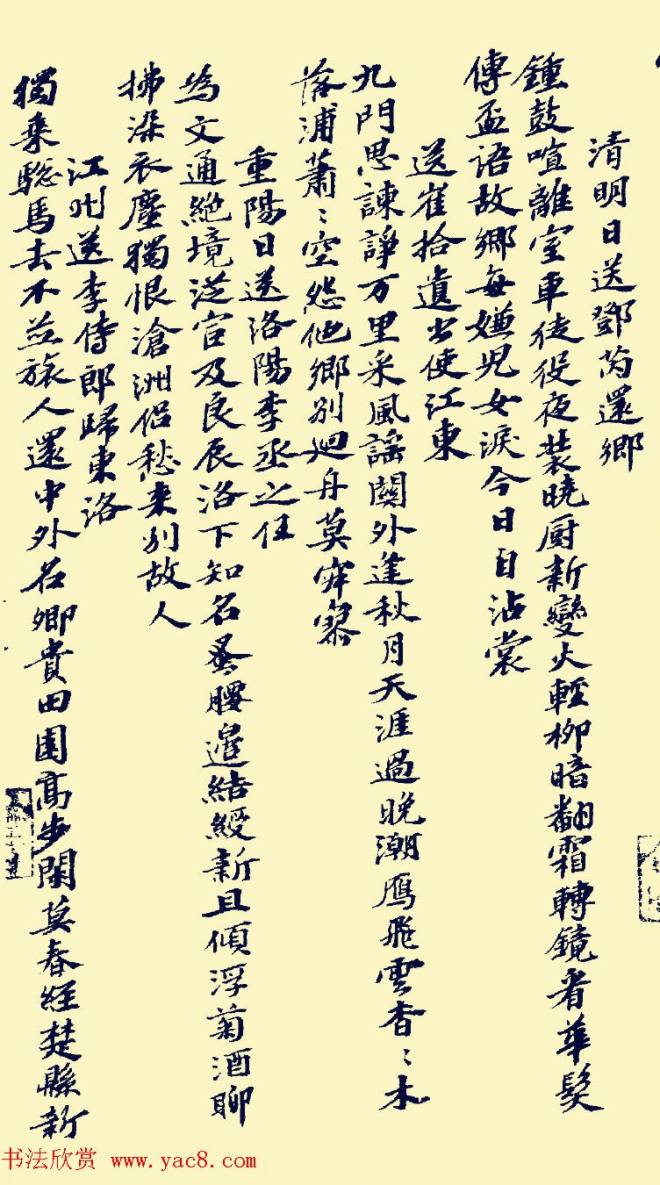 清明日送鄧芮還鄉
鍾鼓喧離室車徒役夜裝曉厨新變火輕柳暗翻霜轉鏡看華髮
傳盃語故鄉每嫌兒女淚今日自沾裳
送崔拾遺出使江東
九門思諫諍万里采風謠關外逢秋月天涯過晚潮鴈飛雲杳〻木
落浦蕭〻空怨他鄉別迴舟莫寂寥
重陽日送洛陽李丞之任
為文通絕境從宦及良辰洛下知名蚤腰邊結綬新且傾浮菊酒聊
拂染衣塵獨恨滄洲侶愁來別故人
江州送李侍郎歸東洛
獨乘驄馬去不並旅人還中外名卿貴田園高步閑莫春經楚縣新
书法欣赏 www.yac8.com